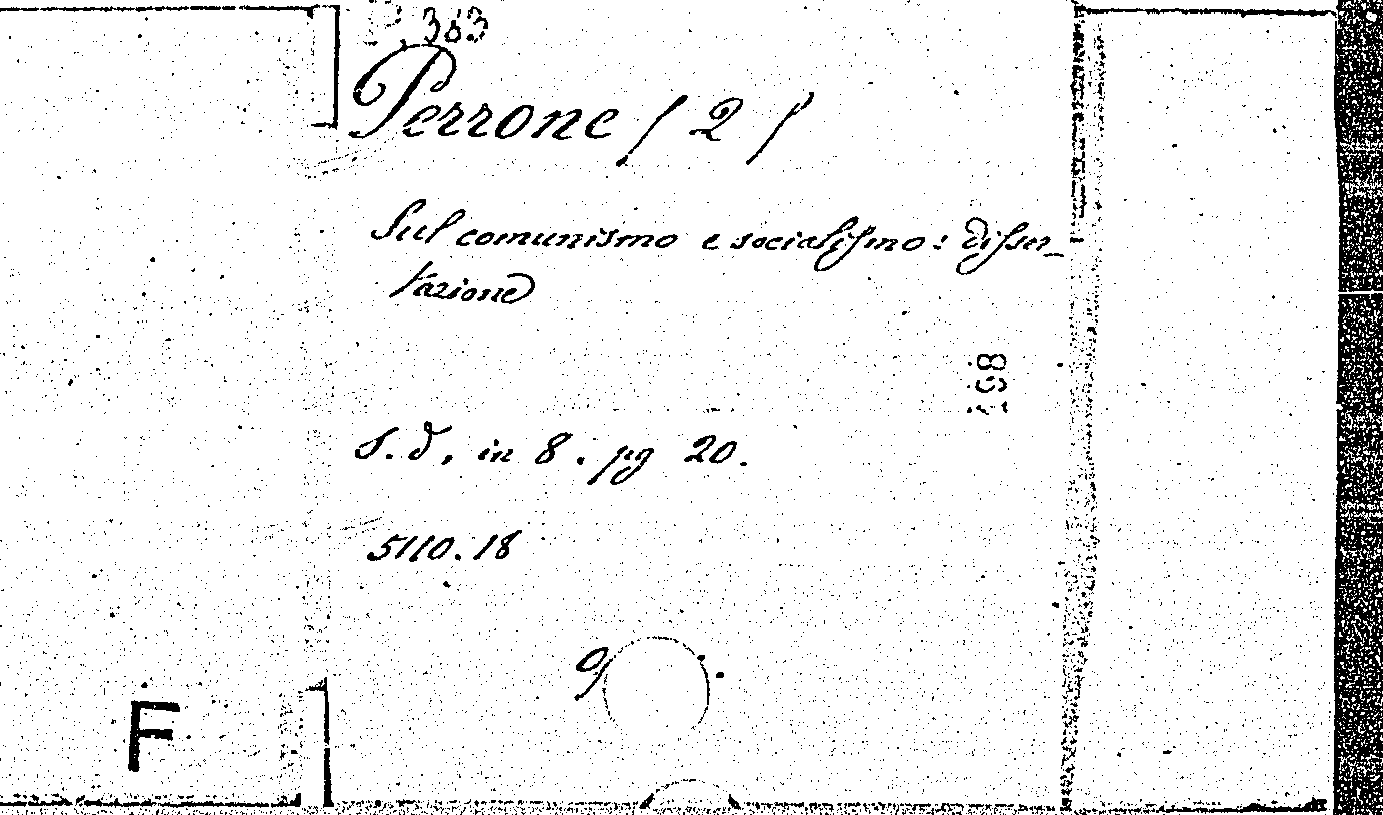 363
Perrone / 2 /
Sul comunismo e socialismo: disser-
tazione
198
S. d. in 8. pg 20.
5110.18
9
F